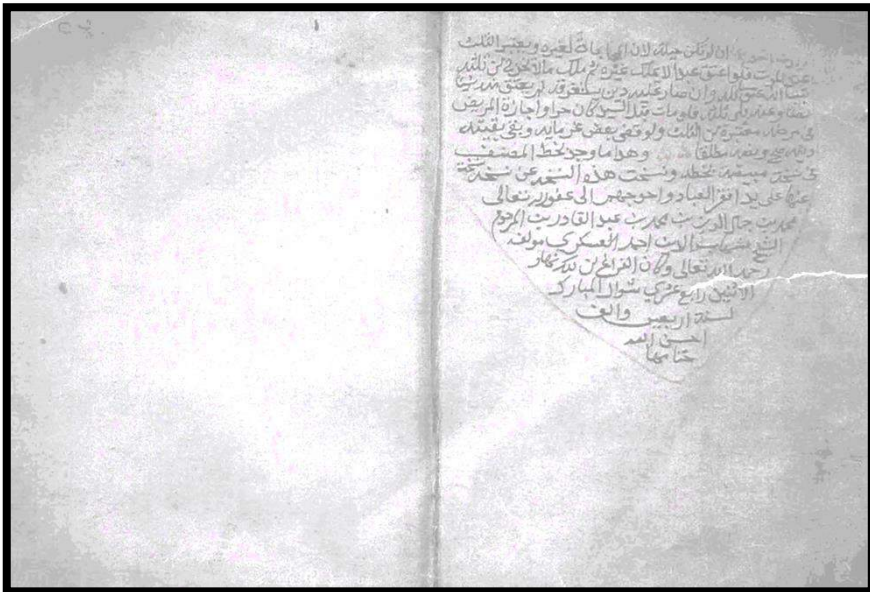 ان لم تكن حيلة لان لغيره ويعتبر الثلث
عند الموت فلو اعتق عبدا لا يملك غيره ثم ملك مالا يخرج من ثلثه
عتق كله وان صار عليه دين يستغرقه لم يعتق منه شيئا
فلو مات قبل السيد كان حرا واجازة المريض
في مرضه معتبرة من الثلث ولو قضى بعض غرمائه وبقي بقيتهم
مطلقا وهذا ما وجد بخط المصنف
في نسخة مبيضة بخطه ونسخت هذه النسخة عن نسخة نسخت
عنها على يد افقر العباد واحوجهم الى عفو الله تعالى
محمد بن جمال الدين بن محمد بن عبد القادر بن المرحوم
الشيخ شهاب الدين احمد العسكري مولفه
رحمه الله تعالى وكان الفراغ من ذلك نهار
الاثنين رابع عشري شوال المبارك
لسنة اربعين والف
احسن الله
ختامها